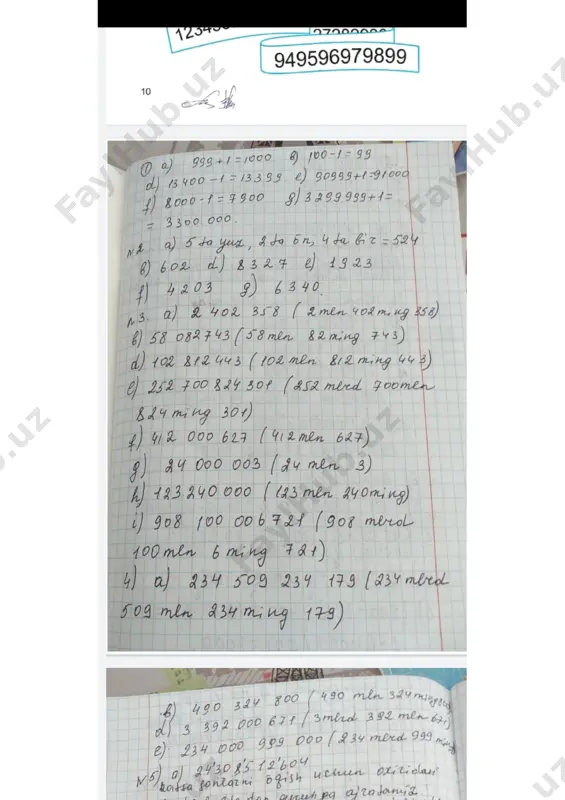 949596979899
10
① a) 999+1=1000 b) 100-1=99
d) 13400-1=13399 e) 90999+1=91000
f) 8000-1=7900 g) 3299999+1=
= 3300 000.
N2. a) 5 ta yuz, 2 ta on, 4 ta bir = 524
b) 602 d) 8327 e) 1923
f) 4203 g) 6340.
N3. a) 2 402 358 (2 mln 402 ming 358)
b) 58 082743 (58 mln 82 ming 743)
d) 102 812 443 (102 mln 812 ming 443)
e) 252 700 824 301 (252 mlrd 700 mln
824 ming 301)
f) 412 000 627 (412 mln 627)
g) 24 000 003 (24 mln 3)
h) 123 240 000 (123 mln 240 ming)
i) 908 100 006 721 (908 mlrd
100 mln 6 ming 721)
4) a) 234 509 234 179 (234 mlrd
509 mln 234 ming 179)
b) 490 324 800 (490 mln 324 ming
d) 3 392 000 671 (3 mlrd 392 mln 671)
e) 234 000 999 000 (234 mlrd 999 ming
N5) a) 24'308'512'604
katta sonlarni o'qish uchun oxiridan
FayllHub.uz